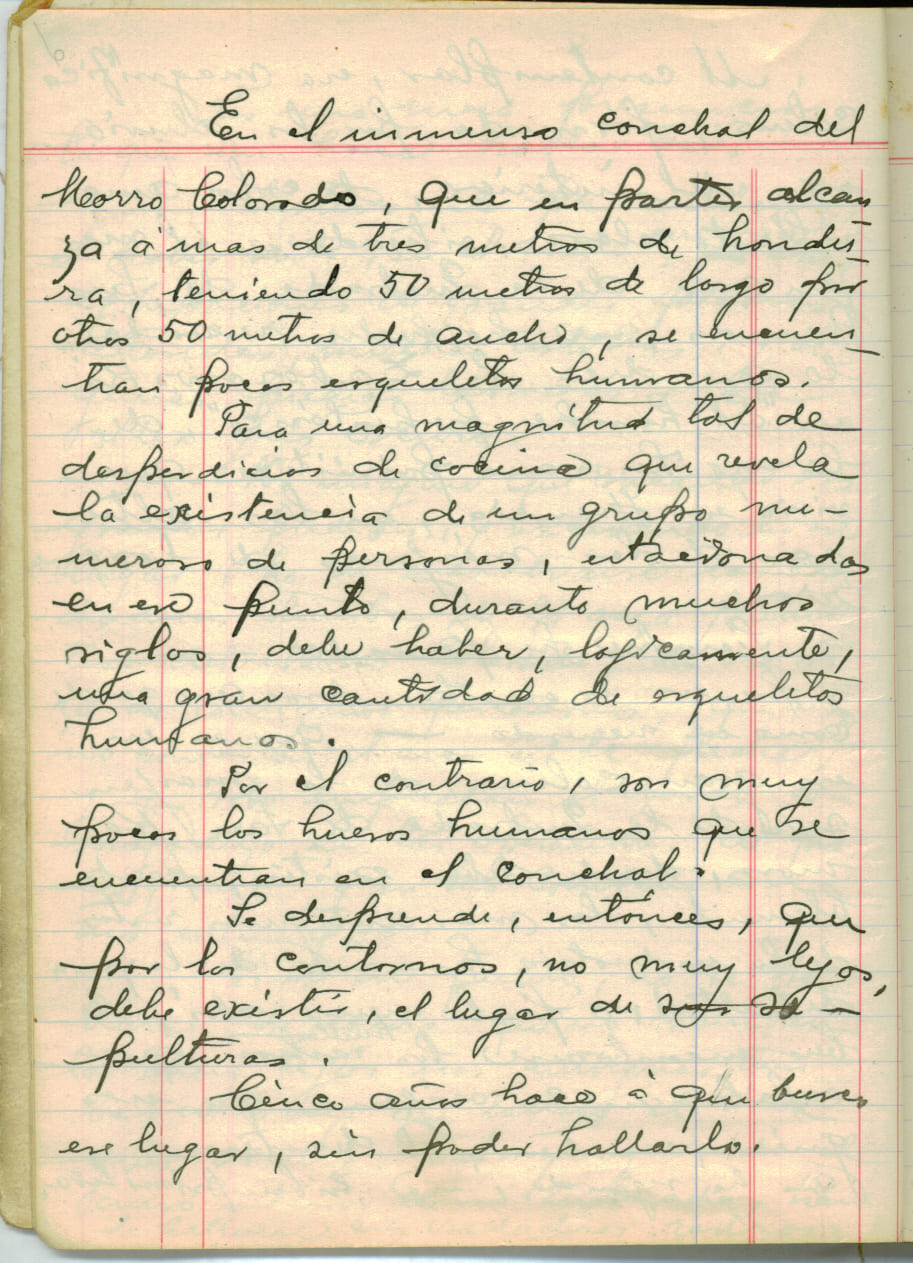 En el inmenso conchal del
Morro Colorado, que en partes alcan
za á mas de tres metros de hondu
ra, teniendo 50 metros de largo por
otros 50 metros de ancho, se encuen
tran pocos esqueletos humanos.
Para una magnitud tal de
desperdicios de cocina que revela
la existencia de un grupo nu-
meroso de personas, estacionadas
en ese punto, durante muchos
siglos, debe haber, logicamente,
una gran cantidad de esqueletos
humanos.
Por el contrario, son muy
pocos los huesos humanos que se
encuentran en el conchal.
Se desprende, entónces, que
por los contornos, no muy lejos,
debe existir, el lugar de sus se-
pulturas.
Cinco años hace á que busco
ese lugar, sin poder hallarlo.